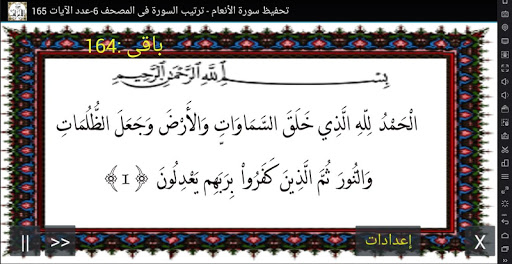 تحفيظ سورة الأنعام - ترتيب السورة فى المصحف 6-عدد الآيات 165
باقى :164
بِسْمِ اللَّهِ الرَّحْمَٰنِ الرَّحِيمِ
الْحَمْدُ لِلَّهِ الَّذِي خَلَقَ السَّمَاوَاتِ وَالْأَرْضَ وَجَعَلَ الظُّلُمَاتِ
وَالنُّورَ ثُمَّ الَّذِينَ كَفَرُواْ بِرَبِّهِم يَعْدِلُونَ ﴿١﴾
|| >> إعدادات X